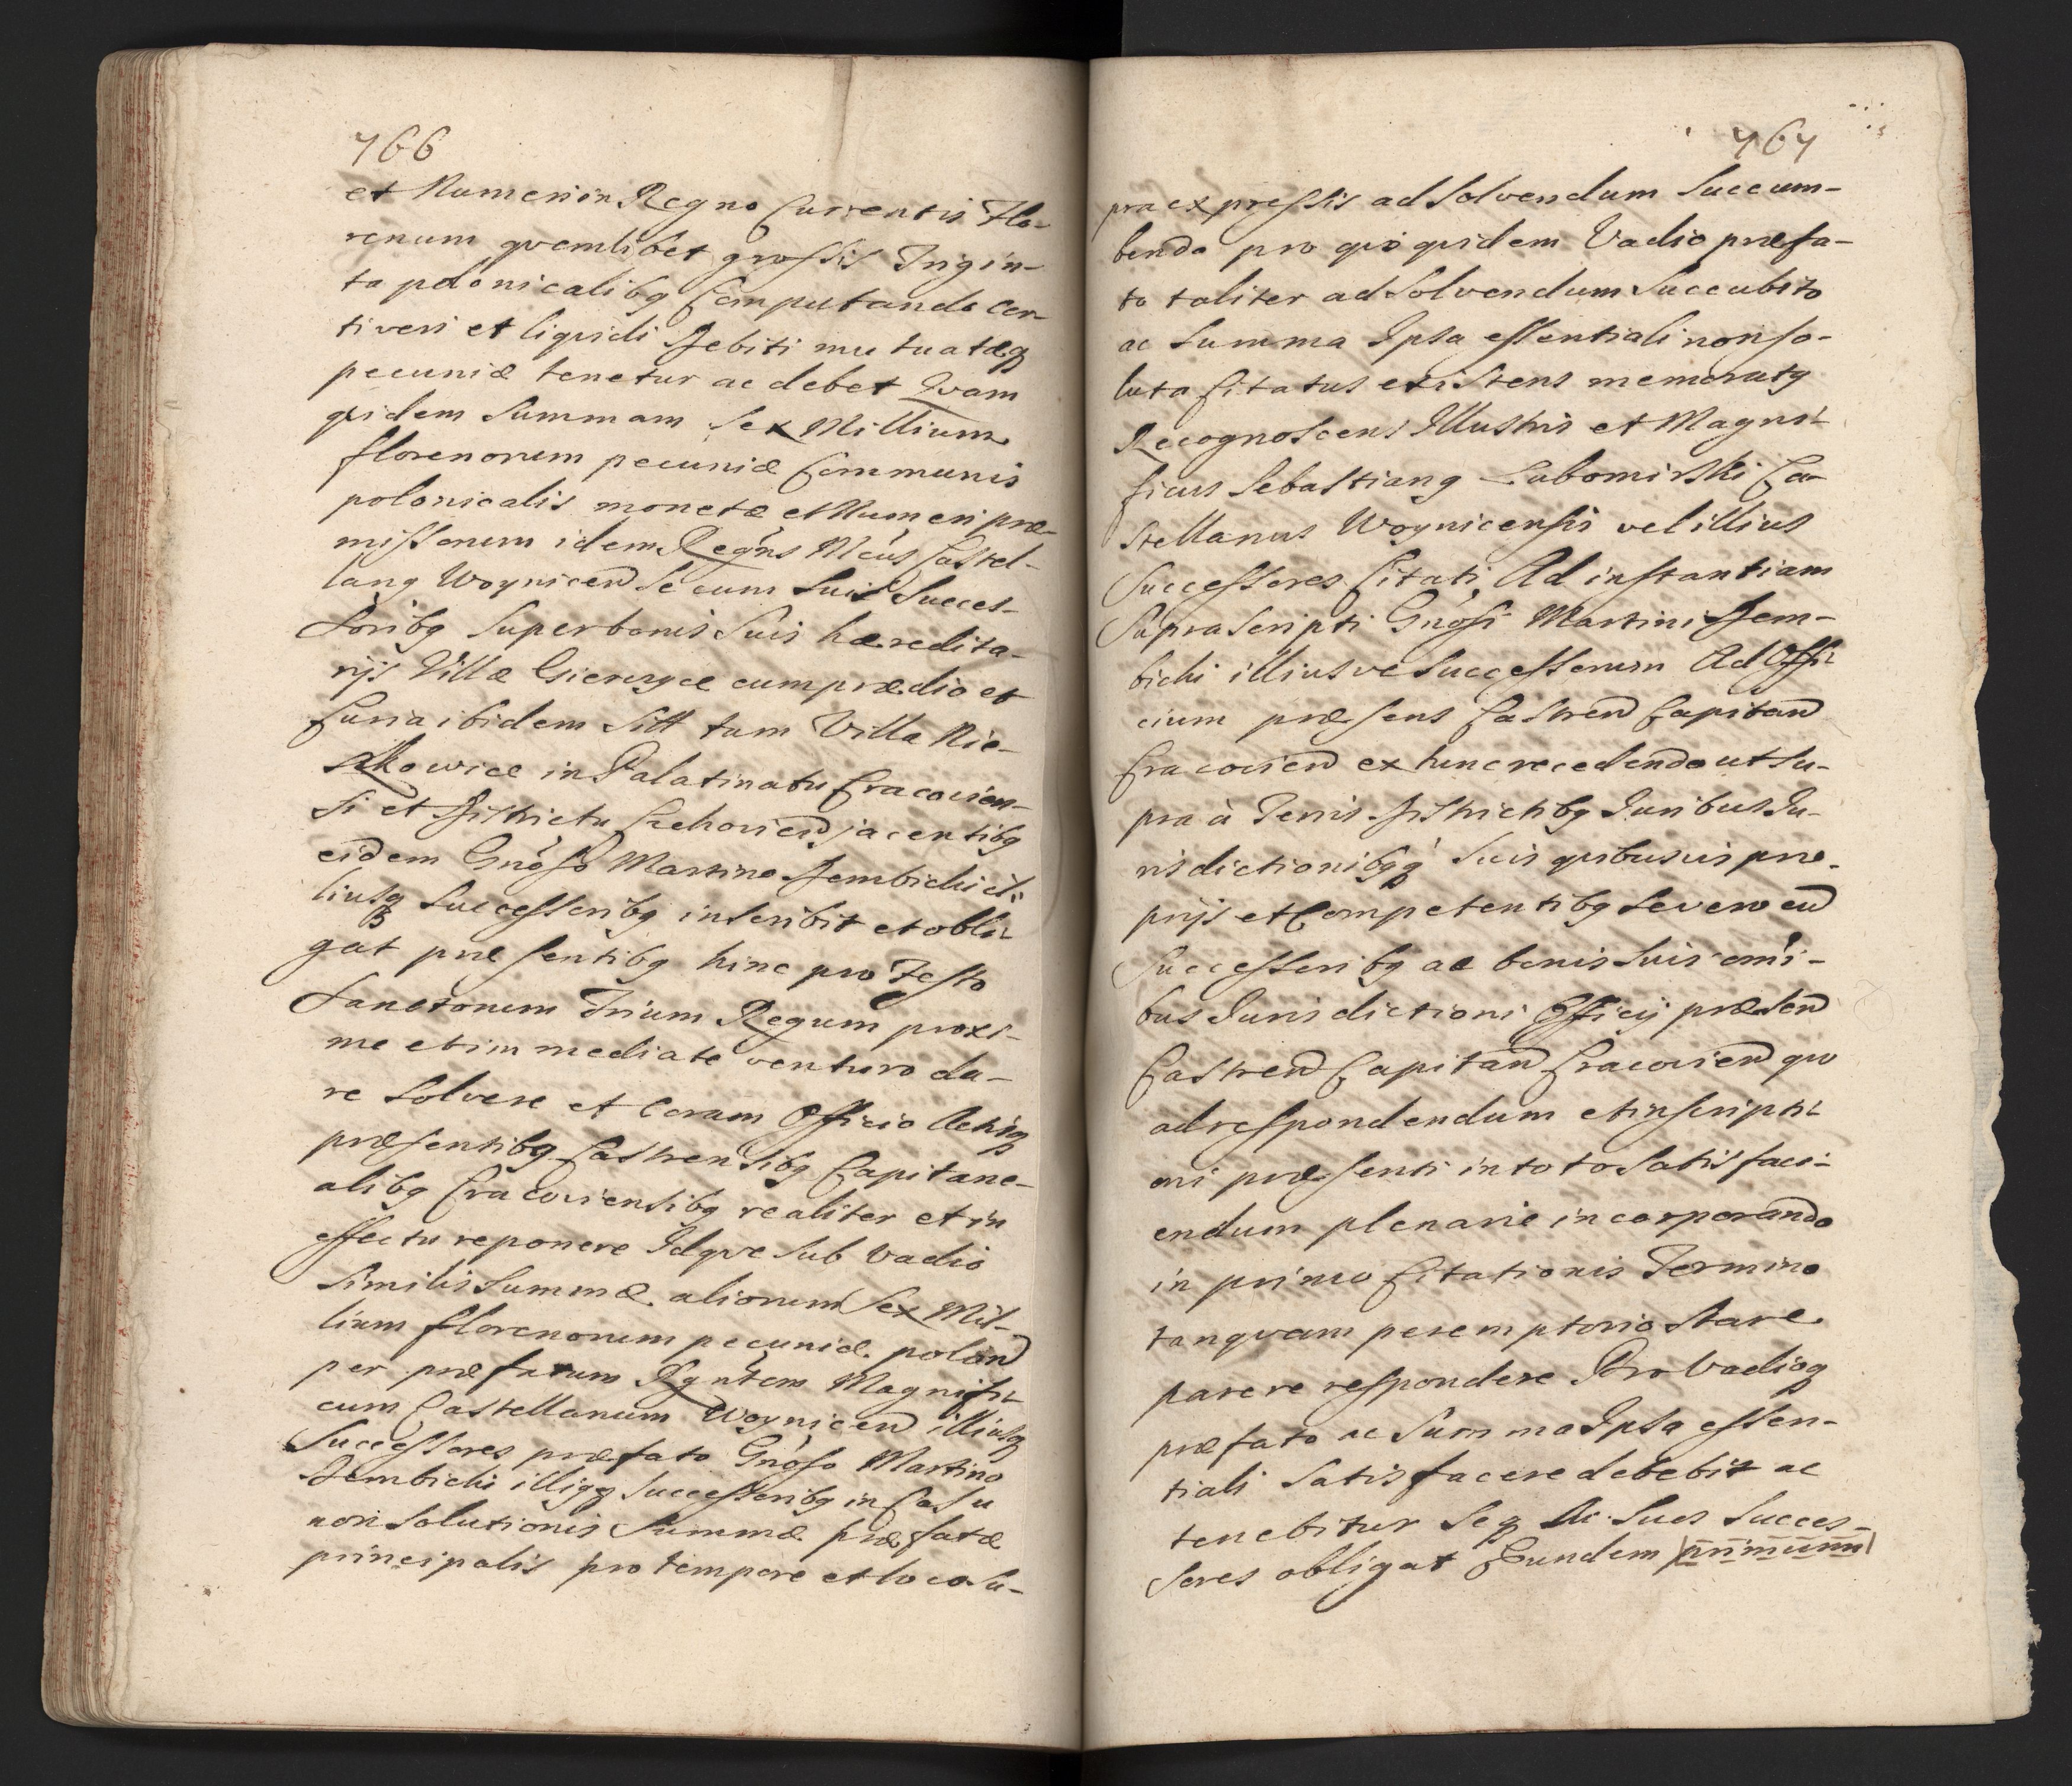 766
et Numeri in Regno Currentis Flo-
renum qvemlibet grossis Trigin-
ta polonicalibq Computando cer-
ti veri et liqvidi Debiti mutuatæq
pecuniæ tenetur ac debet Qvam
qvidem Summam Sex Millium
florenorum pecuniæ Communis
polonicalis monetæ et Numeri præ-
missorum idem Regńs Mcús Castel-
lanq Woyniceñ Se cum Suis Succes-
soribq Super bonis Suis hæredita-
rijs Villæ Gierczyce cum prædio et
Curia ibidem Sitt tum Villa Nie-
szkowice in Palatinatu Cracovien-
si et Districtu Czchovieñ jacentibq
eidem Gnóso Martino Dembicki il-
liusq Successoribq inscribit et obli-
gat præsentibq hinc pro Festo
Sanctorum Trium Regum proxi-
me et immediate venturo da-
re Solvere et Coram Officio Actisq
præsentibq Castrensibq Capitane-
alibq Cracoviensibq realiter et in
effectu reponere Idqve Sub Vadio
Similis Summæ aliorum Sex Mil-
lium florenorum pecuniæ poloñ
per præfatum Rgńtem Magnifi-
cum Castellanum Woyniceñ illiusq
Successores præfato Gnóso Martino
Dembicki illiqq Successoribq in Casu
non Solutionis Summæ præfatæ
principalis pro tempore et loco Su-
767
praexpressis ad Solvendum Succum-
bendo pro qvo qvidem Vadio præfa-
to taliter ad Solvendum Succubito
ac Summa Ipsa essentiali non so-
luta Citatus existens memoratq
Recognoscens Illustris et Magni-
ficus Sebastianq Lubomirski Ca-
stellanus Woynicensis vel illius
Successores Citati, Ad instantiam
Suprascripti Gnósi Martini Dem-
bicki illiusve Successorum Ad Offi-
cium præsens Castreñ Capitañ
Cracovieñ ex tunc recedendo ut Su-
pra à Terris Districtibq Juribus Ju-
risdictionibqq Suis qvibusvis pro-
prijs et Competentibq Se vero cũ
Successoribq ac bonis Suis omi-
bus Jurisdictioni Officij præseñ
Castreñ Capitañ Cracovieñ qvo
ad respondendum et inscripti-
oni præsenti in toto Satisfaci-
endum plenarie incorporando
in primo Citationis Termino
tanqvam peremptorio Stare
parere respondere Pro Vadioq
præfato ac Summa Ipsa essen-
tiali Satisfacere debebit ac
tenebitur Seq Ac Suos Succes-
sores obligat Eundem primum